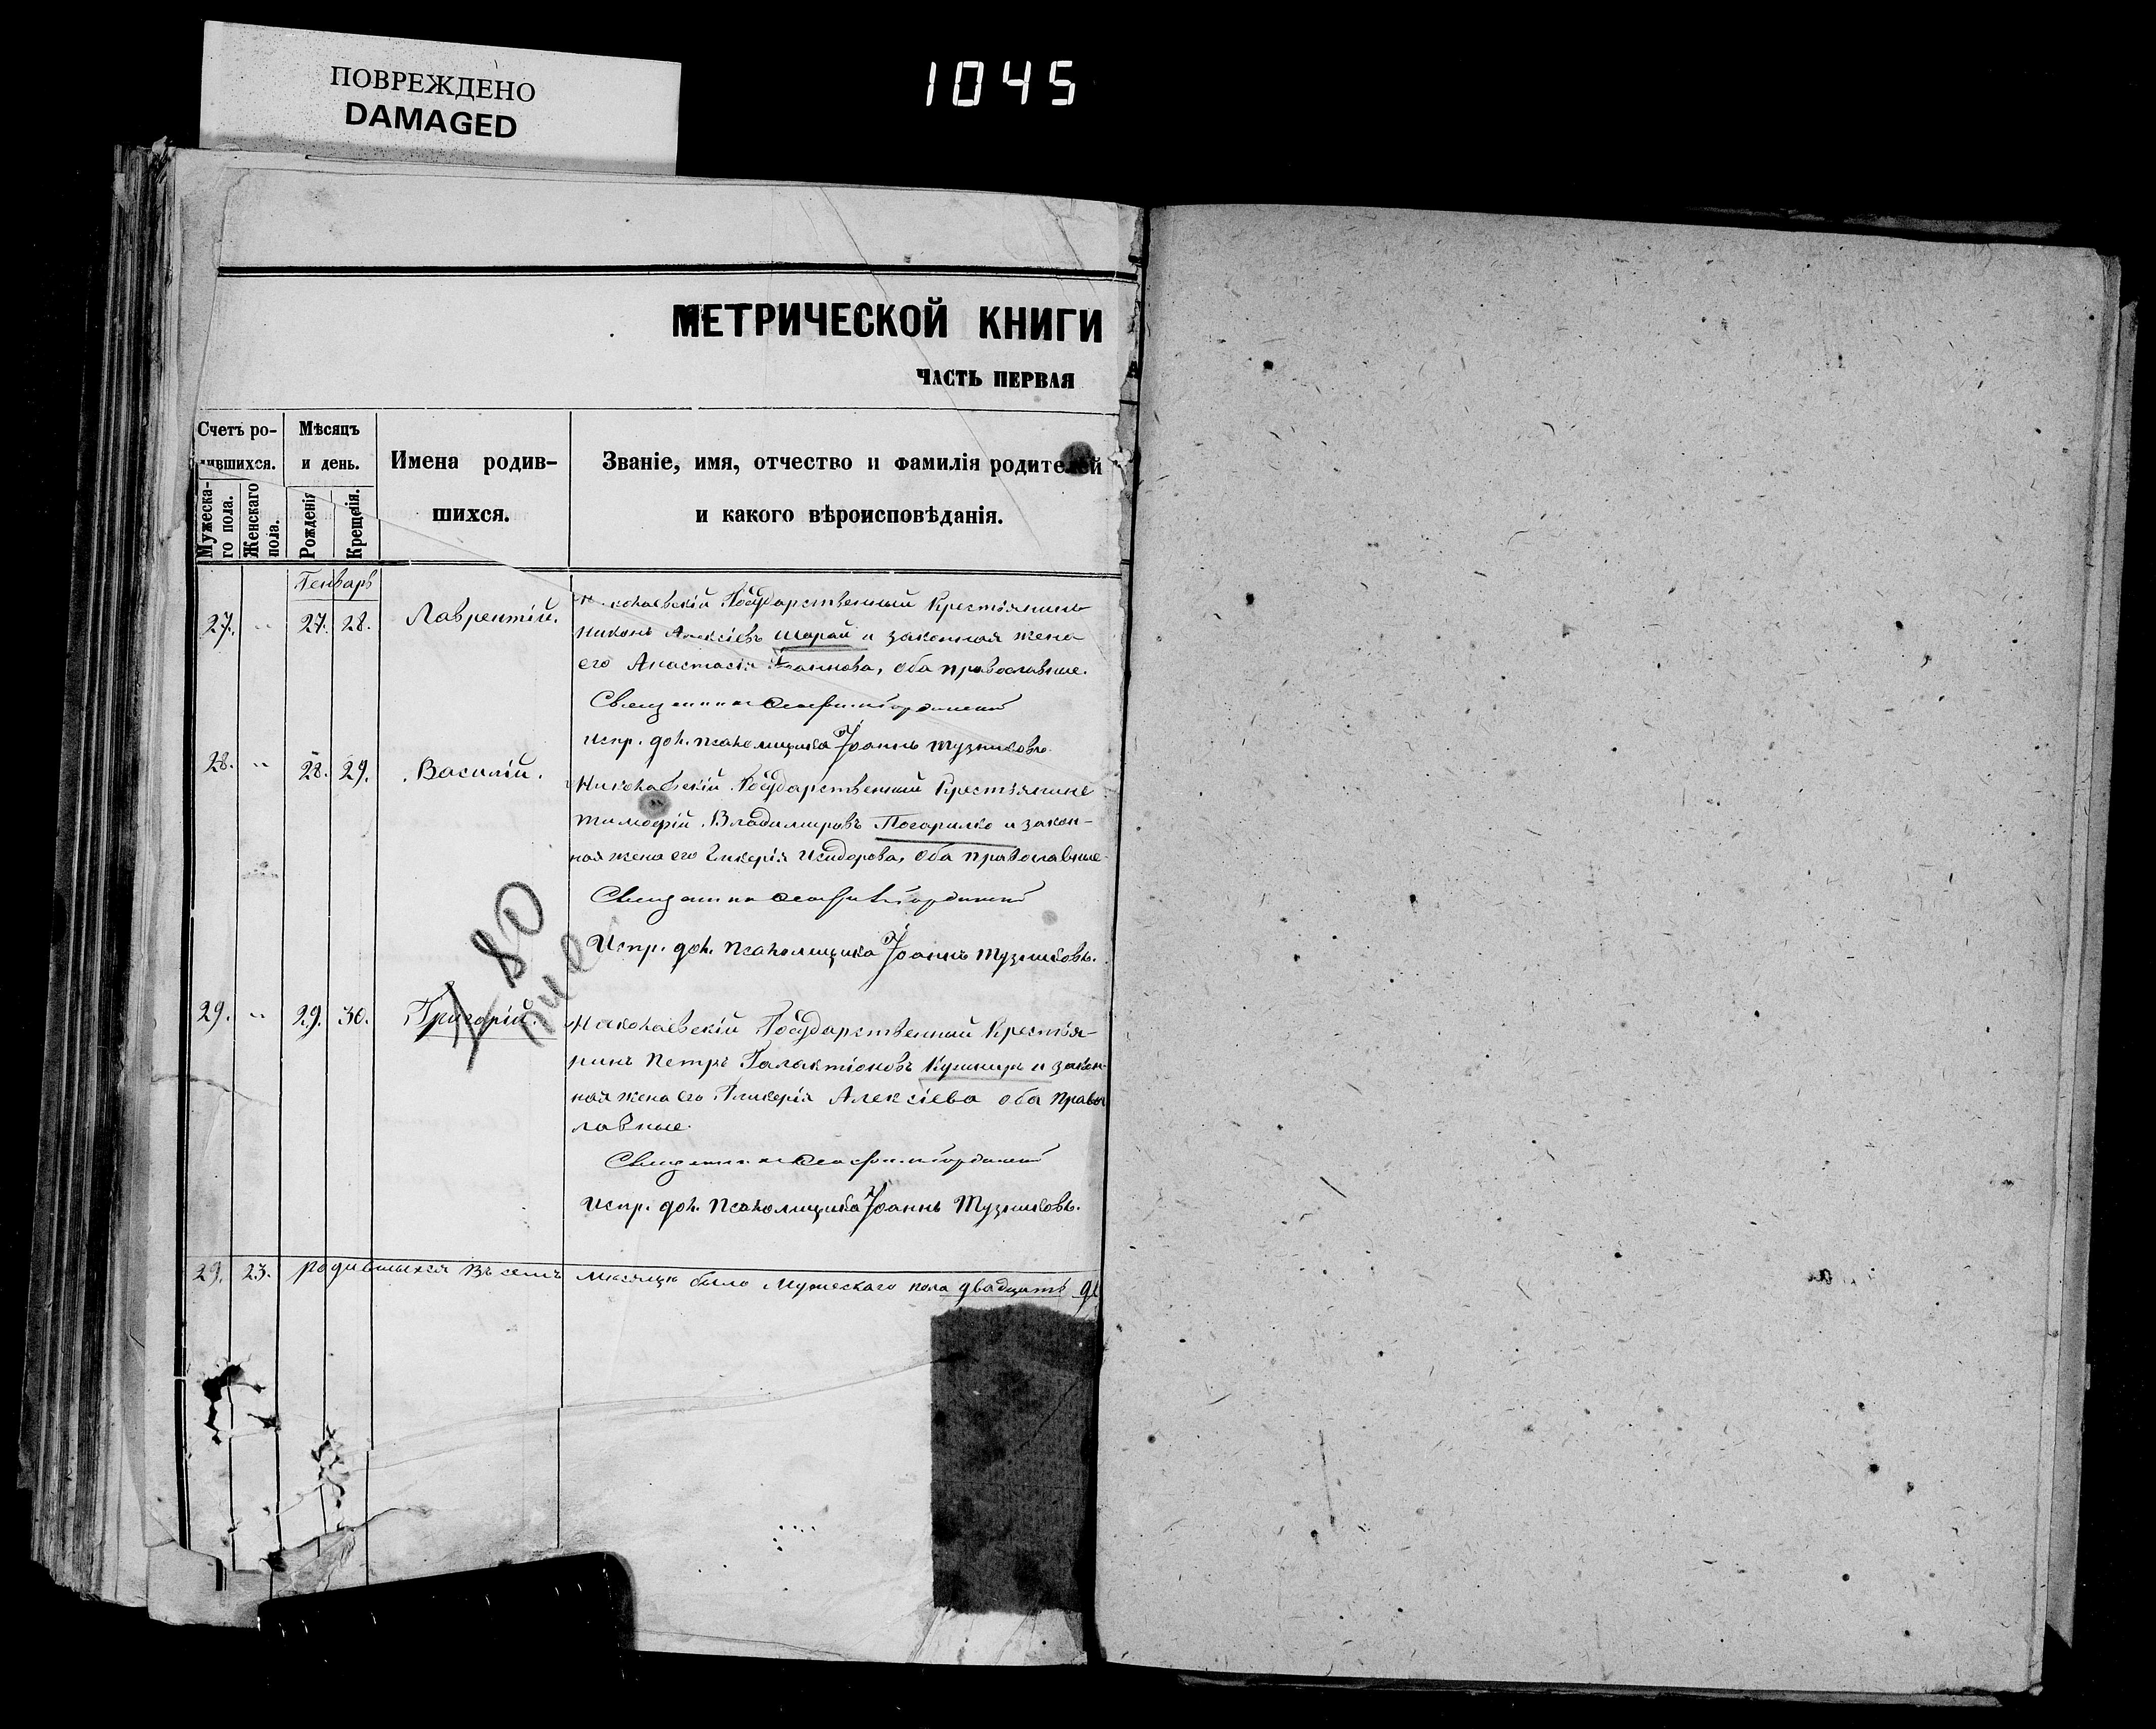 ПОВРЕЖДЕНО
DAMAGED
1045
МЕТРИЧЕСКОЙ КНИГИ
ЧАСТЬ ПЕРВАЯ
Счетъ ро-
дившихся.
Мужеска-
го пола.
Женскаго
пола.
Мѣсяцъ
и день.
Рожденія
Крещенія.
Имена родив-
шихся.
Званіе, имя, отчество и фамилія родителей
и какого вѣроисповѣданія.
Генварь
27. " 27. 28. Лаврентій.
Николаевскій Государственный Крестьянинъ
Никонъ Алексіевъ Шарай и законная жена
его Анастасія Іоаннова, оба православные.
Священникъ
Испр. дол. псаломщика Іоаннъ Тузниковъ.
28. " 28. 29. Василій.
Николаевскій Государственный Крестьянинъ
Тимофій Владимировъ Погорилко и закон-
ная жена его Гликерія Исидорова, оба православные.
Священникъ
Испр. дол. Псаломщика Іоаннъ Тузниковъ.
80
29. " 29. 30. Григорій.
Николаевскій Государственный Крестья-
нинъ Петръ Галактіоновъ Кушниръ и закон-
ная жена его Гликерія Алексіева оба правос
лавные.
Священникъ
Испр. дол. Псаломщика Іоаннъ Тузниковъ.
29. 23. родившихся въ семъ мѣсяцѣ было мужескаго пола двадцать де